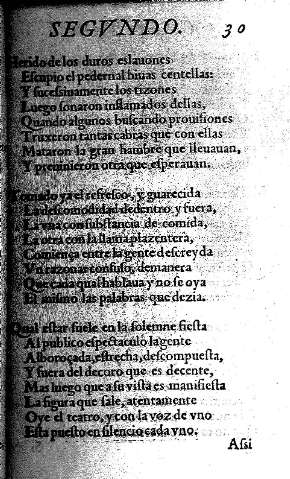 SEGVNDO. 30
Herido de los duros eslauones
Escupio el pedernal biuas centellas:
Y sucessiuamente los tizones
Luego sonaron inflamados dellas,
Quando algunos buscando prouisiones
Truxeron tantas cabras que con ellas
Mataron la gran hambre que lleuauan,
Y preuinieron otra que esperauan.
Tomado ya el refresco, y guarecida
La descomodidad de dentro y fuera,
La vna con substancia de comida,
La otra con la llama plazentera,
Comiença entre la gente descreyda
Vn razonar confuso, de manera
Que cada qual hablaua y no se oya
El mismo las palabras que dezia.
Qual estar suele en la solemne fiesta
Al publico espectaculo la gente
Alboroçada, estrecha, descompuesta,
Y fuera del decoro que es decente,
Mas luego que a su vista es manifiesta
La figura que sale, atentamente
Oye el teatro, y con la voz de vno
Esta puesto en silencio cada vno.
Assi